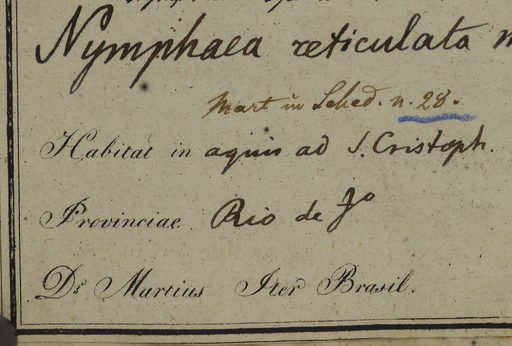 Nymphaea reticulata
Mart in Sched. n. 28.
Habitat in aquis ad S. Cristoph.
Provinciae Rio de Jo
Dr Martius Iter Brasil.